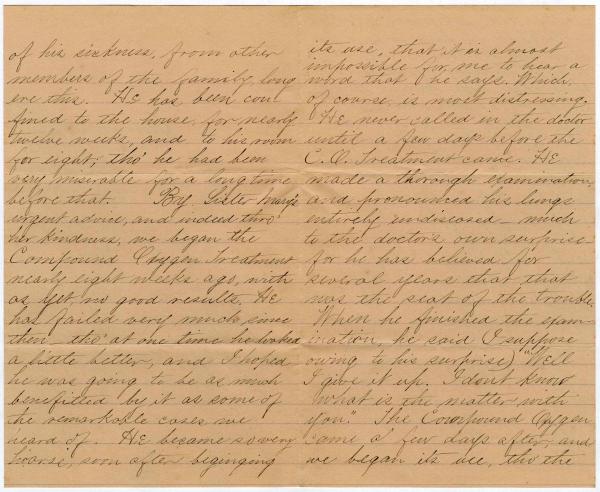 of his sickness, from other
members of the family long
ere this. He has been con
fined to the house, for nearly
twelve weeks, and to his room
for eight; tho' he had been
very miserable for a long time
before that. By Sister
urgent advice, and indeed thro'
her kindness, we began the
Compound Oxygen Treatment
nearly eight weeks ago, with
as yet no good results. He
has failed very much since
then, tho' at one time he looked
a little better, and I hoped
he was going to be as much
benefitted by it as some of
the remarkable cases we
heard of. He became so very
hoarse, soon after beginging
its use, that it is almost
impossible for me to hear a
word that he says. Which,
of course, is most distressing.
He never called in the doctor
until a few days before the
C.O. Treatment came. He
made a thorough examination,
and pronounced his lungs
entirely undiseased - much
to the doctor's own surprise -
for he has believed for
several years that that
was the seat of the trouble.
When he finished the exam-
ination, he said (I suppose
owing to his surprise) "Well
I give it up. I don't know
what is the matter with
you." The Compound Oxygen
came a few days after, and
we began its use, tho' the